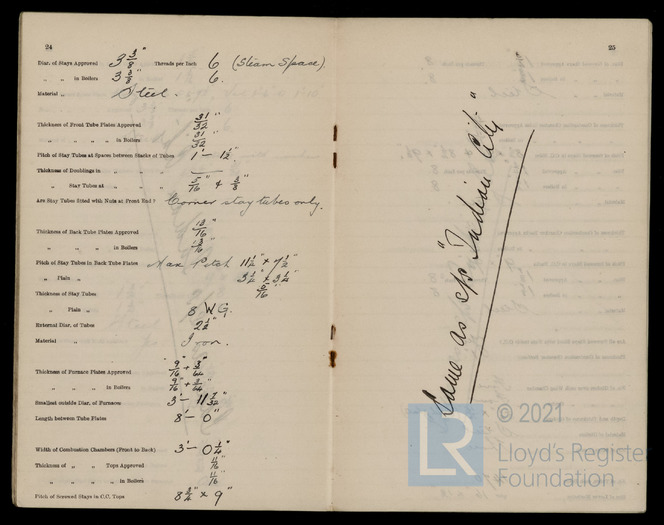 24
Diar. of Stays Approved 3 3/8" Threads per Inch 6 (Steam Space)
" " in Boilers 3 3/8" 6.
Material " Steel.
Thickness of Front Tube Plates Approved 31/32"
" " " " in Boilers 31/32"
Pitch of Stay Tubes at Spaces between Stacks of Tubes 1' - 1 1/2"
Thickness of Doublings in " " —
" Stay Tubes at " " 5/16" & 3/8"
Are Stay Tubes fitted with Nuts at Front End ? Corner stay tubes only.
Thickness of Back Tube Plates Approved 13/16"
" " " " in Boilers 13/16"
Pitch of Stay Tubes in Back Tube Plates Max Pitch 11 1/2" x 7 1/2"
" Plain " 3 1/2" x 3 1/4"
Thickness of Stay Tubes 5/16"
" Plain " 8 W.G.
External Diar. of Tubes 2 1/2"
Material " Iron.
Thickness of Furnace Plates Approved 9/16" + 3/64"
" " " in Boilers 9/16" + 3/64"
Smallest outside Diar. of Furnaces 3' - 11 7/32"
Length between Tube Plates 8' - 0"
Width of Combustion Chambers (Front to Back) 3' - 0 1/4"
Thickness of " " Tops Approved 11/16"
" " " " in Boilers 11/16"
Pitch of Screwed Stays in C.C. Tops 8 3/4" x 9"
25
Same as o/s "Indian City"
LR
© 2021
Lloyd's Register
Foundation